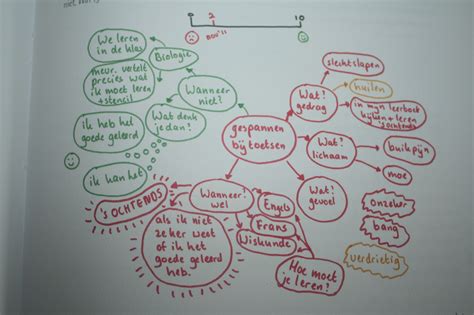 0
2
10
nov '11
We leren
in de klas
Biologie
meur. vertelt
precies wat
ik moet leren
+ stencil
Wanneer
niet?
Wat denk
je dan?
ik heb het
goede geleerd
ik kan het
gespannen
bij toetsen
Wat?
gedrag
slecht slapen
huilen
in mijn leerboek
kijken + leren
's ochtends
Wat?
lichaam
buikpijn
moe
Wat?
gevoel
onzeker
bang
verdrietig
Wanneer
wel
's OCHTENDS
als ik niet
zeker weet
of ik het
goede geleerd
heb.
Engels
Frans
Wiskunde
Hoe moet
je leren?